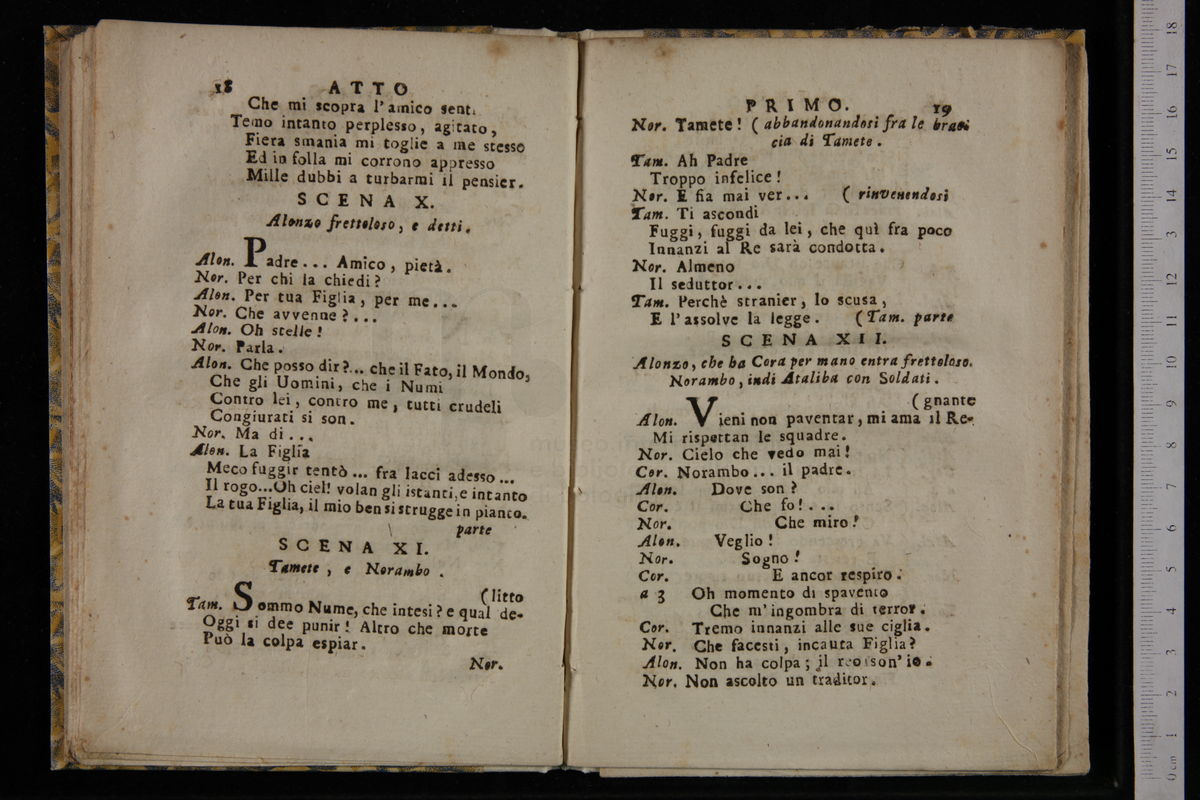 18 ATTO
Che mi scopra l'amico sent.
Temo intanto perplesso, agitato,
Fiera smania mi toglie a me stesso
Ed in folla mi corrono appresso
Mille dubbi a turbarmi il pensier.
SCENA X.
Alonzo frettoloso, e detti.
Alon. Padre... Amico, pietà.
Nor. Per chi la chiedi?
Alon. Per tua Figlia, per me...
Nor. Che avvenne?...
Alon. Oh stelle!
Nor. Parla.
Alon. Che posso dir?... che il Fato, il Mondo,
Che gli Uomini, che i Numi
Contro lei, contro me, tutti crudeli
Congiurati si son.
Nor. Ma di...
Alon. La Figlia
Meco fuggir tentò... fra lacci adesso...
Il rogo...Oh ciel! volan gli istanti, e intanto
La tua Figlia, il mio ben si strugge in pianto.
parte
SCENA XI.
Tamete, e Norambo.
(litto
Tam. Sommo Nume, che intesi? e qual de-
Oggi si dee punir! Altro che morte
Può la colpa espiar.
Nor.
PRIMO. 19
Nor. Tamete! (abbandonandosi fra le brac
cia di Tamete.
Tam. Ah Padre
Troppo infelice!
Nor. E fia mai ver... (rinvenendosi
Tam. Ti ascondi
Fuggi, fuggi da lei, che quì fra poco
Innanzi al Re sarà condotta.
Nor. Almeno
Il seduttor...
Tam. Perchè stranier, lo scusa,
E l'assolve la legge. (Tam. parte
SCENA XII.
Alonzo, che ha Cora per mano entra frettoloso.
Norambo, indi Ataliba con Soldati.
(gnante
Alon. Vieni non paventar, mi ama il Re-
Mi rispettan le squadre.
Nor. Cielo che vedo mai!
Cor. Norambo... il padre.
Alon. Dove son?
Cor. Che fo!...
Nor. Che miro!
Alon. Veglio!
Nor. Sogno!
Cor. E ancor respiro.
a 3 Oh momento di spavento
Che m'ingombra di terror.
Cor. Tremo innanzi alle sue ciglia.
Nor. Che facesti, incauta Figlia?
Alon. Non ha colpa; il reo son' io.
Nor. Non ascolto un traditor.
0 cm 1 2 3 4 5 6 7 8 9 10 11 12 13 14 15 16 17 18